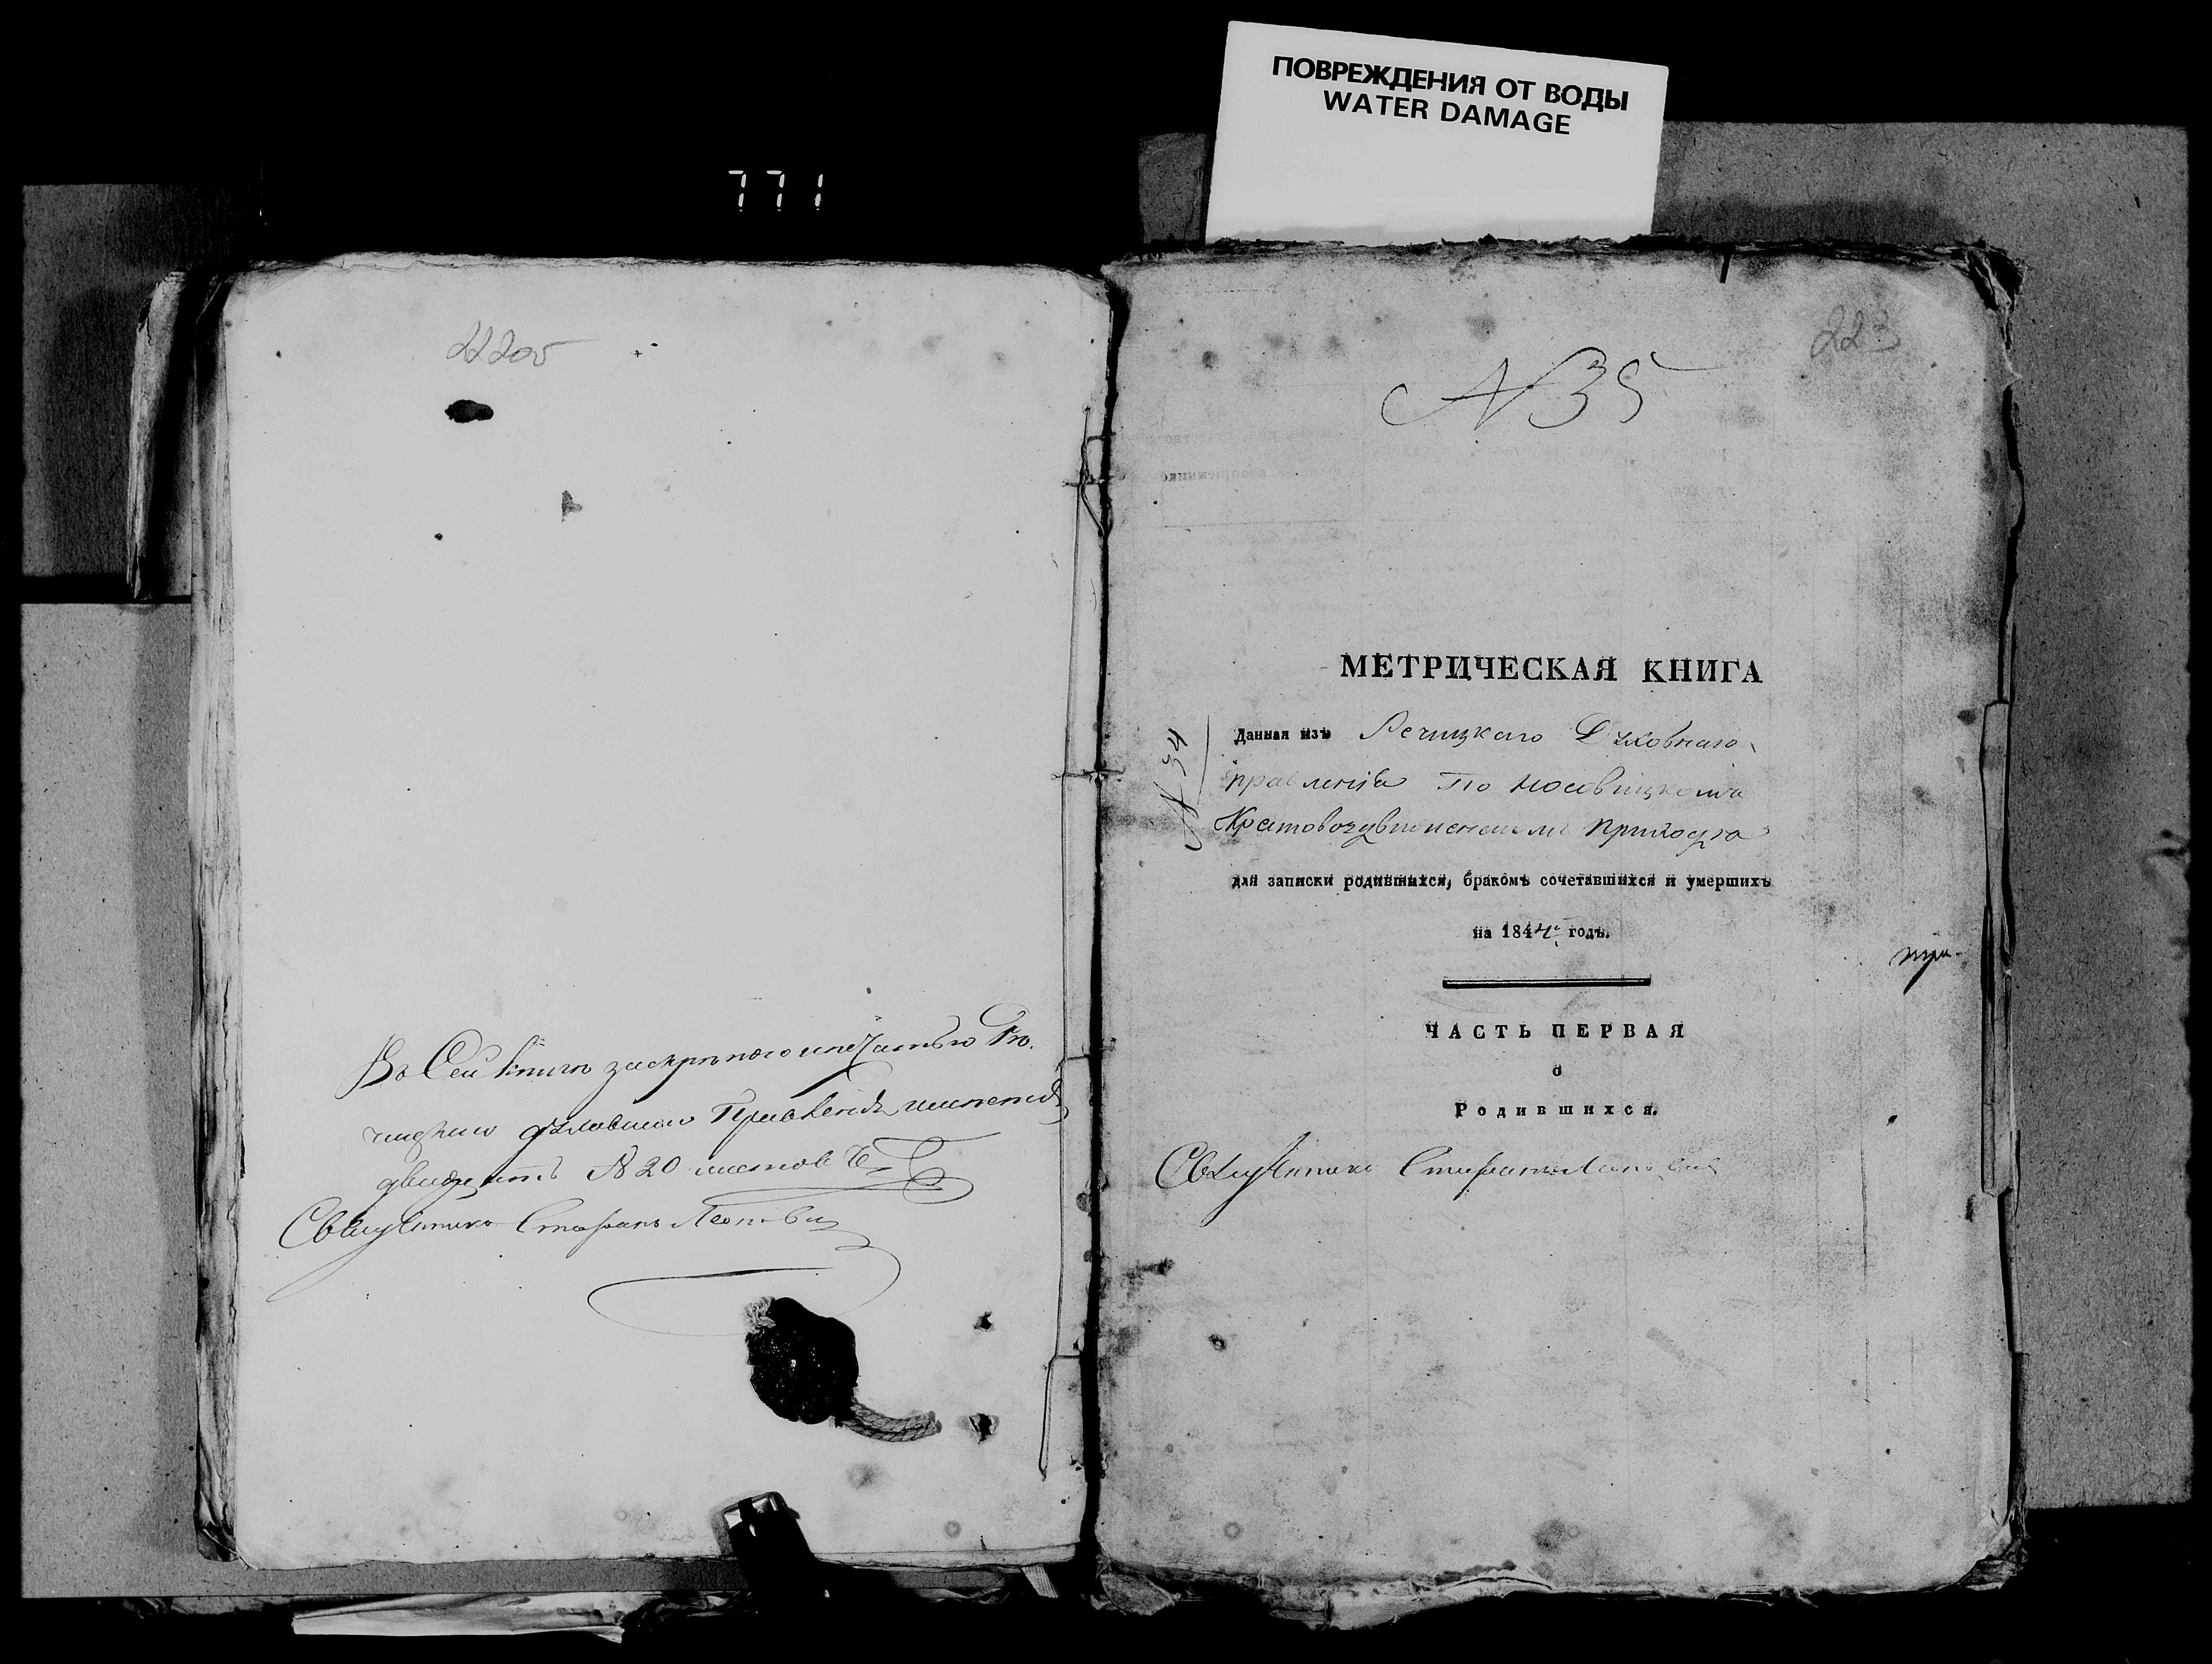 ПОВРЕЖДЕНИЯ ОТ ВОДЫ
WATER DAMAGE
771
222об
Въ Сей книгѣ за скрѣпою и печатью Рѣ-
чицкаго духовнаго Правленія имѣется
двадцать № 20 листовъ
Священникъ Стефанъ
223
№ 35
МЕТРИЧЕСКАЯ КНИГА
Данная изъ Речицкаго Духовнаго
правленія По Носовицкому
Крестовоздвиженскому приходу
№ 34
для записки родившихся, бракомъ сочетавшихся и умершихъ
на 1844 годъ.
при-
ЧАСТЬ ПЕРВАЯ
о
Родившихся.
Священникъ Стефанъ